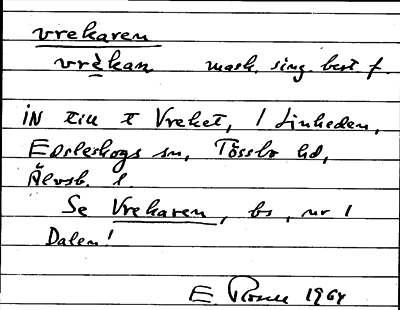 vrekaren
vrèkan mask. sing. best. f.
IN till t Vreket, 1 Linheden,
Edsleskogs sn, Tössbo hd,
Älvsb. l.
Se Vrekaren, bs, nr 1
Dalen!
E. 1964